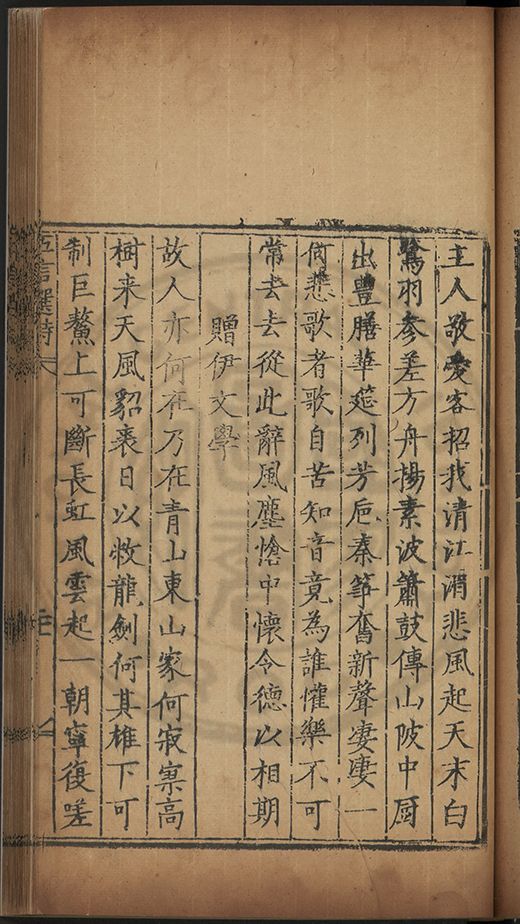 主人敬愛客招我清江湄悲風起天末白
鷺羽參差方舟揚素波簫鼓傳山陂中厨
出豐膳華筵列芳巵秦箏奮新聲凄凄一
何悲歌者歌自苦知音竟為誰懽樂不可
常去去從此辭風塵愴中懷令德以相期
贈伊文學
故人亦何在乃在青山東山家何寂寞高
樹来天風貂裘日以敝龍劍何其雄下可
制巨鰲上可斷長虹風雲起一朝寧復嗟
五言選詩